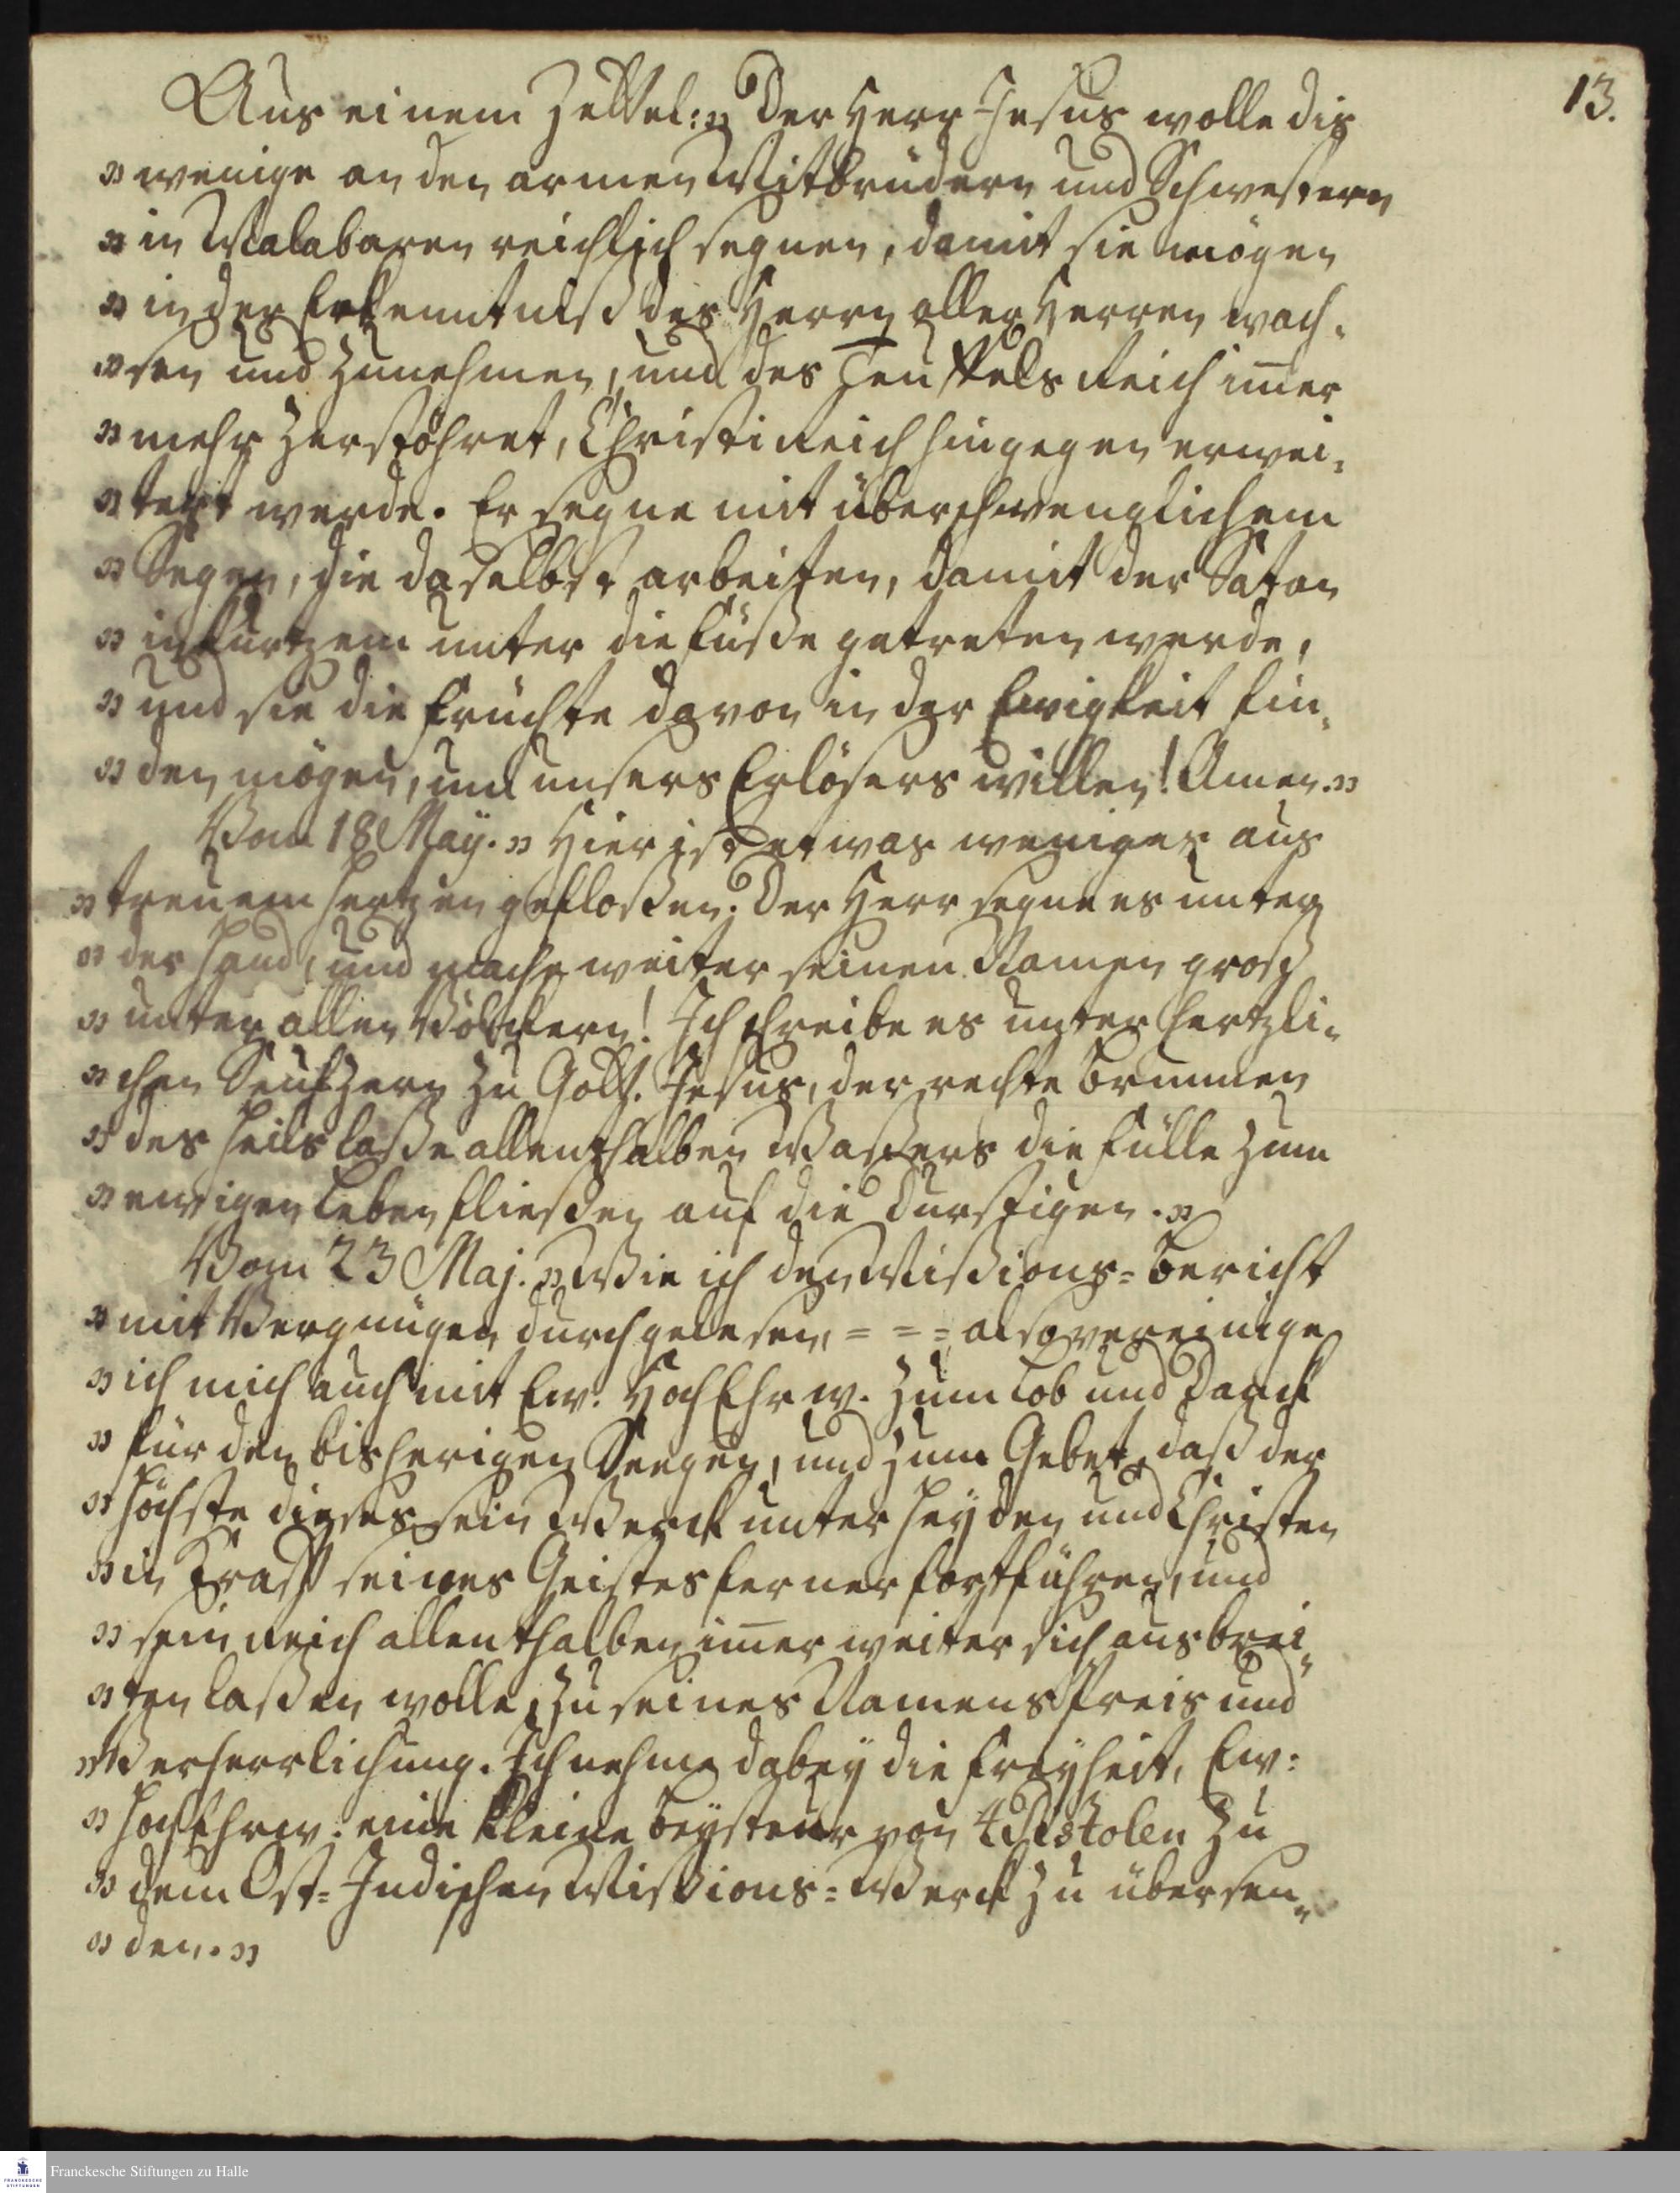 13.
Aus einem Zettel: „Der Herr Jesus wolle dis
„wenige an den armen Mitbrüdern und Schwestern
„in Malabaren reichlich segnen, damit sie mögen
„in der Erkenntniß des Herrn aller Herren wach-
„sen und zunehmen, und des Teuffels Reich im̅er
„mehr zerstöhret, Christi Reich hingegen erwei-
„tert werde. Er segne mit überschwenglichem
„Segen, die daselbst arbeiten, damit der Satan
„in kurtzem unter die Füße getreten werde,
„und sie die Früchte davon in der Ewigkeit fin-
„den mögen, um unsers Erlösers willen! Amen.„
Vom 18 May. „Hier ist etwas weniges aus
„treuem Hertzen gefloßen. Der Herr segne es unter
„der Hand, und mache weiter seinen Namen groß
„unter allen Völckern! Ich schreibe es unter hertzli-
„chen Seufzern zu Gott. Jesus, der rechte Brunnen
„des Heils laße allenthalben Waßers die Fülle zum
„ewigen Leben fließen auf die Durstigen.„
Vom 23 Maj. „Wie ich den Mißions-Bericht
„mit Vergnügen durchgelesen, = = = also vereinige
„ich mich auch mit Ew. HochEhrw. zum Lob und Danck
„für den bisherigen Seegen, und zum Gebet, daß der
„Höchste dieses sein Werck unter Heyden und Christen
„in Krafft seines Geistes ferner fortführen, und
„sein Reich allenthalben im̅er weiter sich ausbrei-
„ten laßen wolle, zu seines Namens Preis und
„Verherrlichung. Ich nehme dabey die Freyheit, Ew:
„HochEhrw: eine kleine Beysteur von 4 Pistolen zu
„dem Ost-Indischen Mißions-Werck zu übersen-
„den.„
Franckesche Stiftungen zu Halle
FRANCKESCHE
STIFTUNGEN